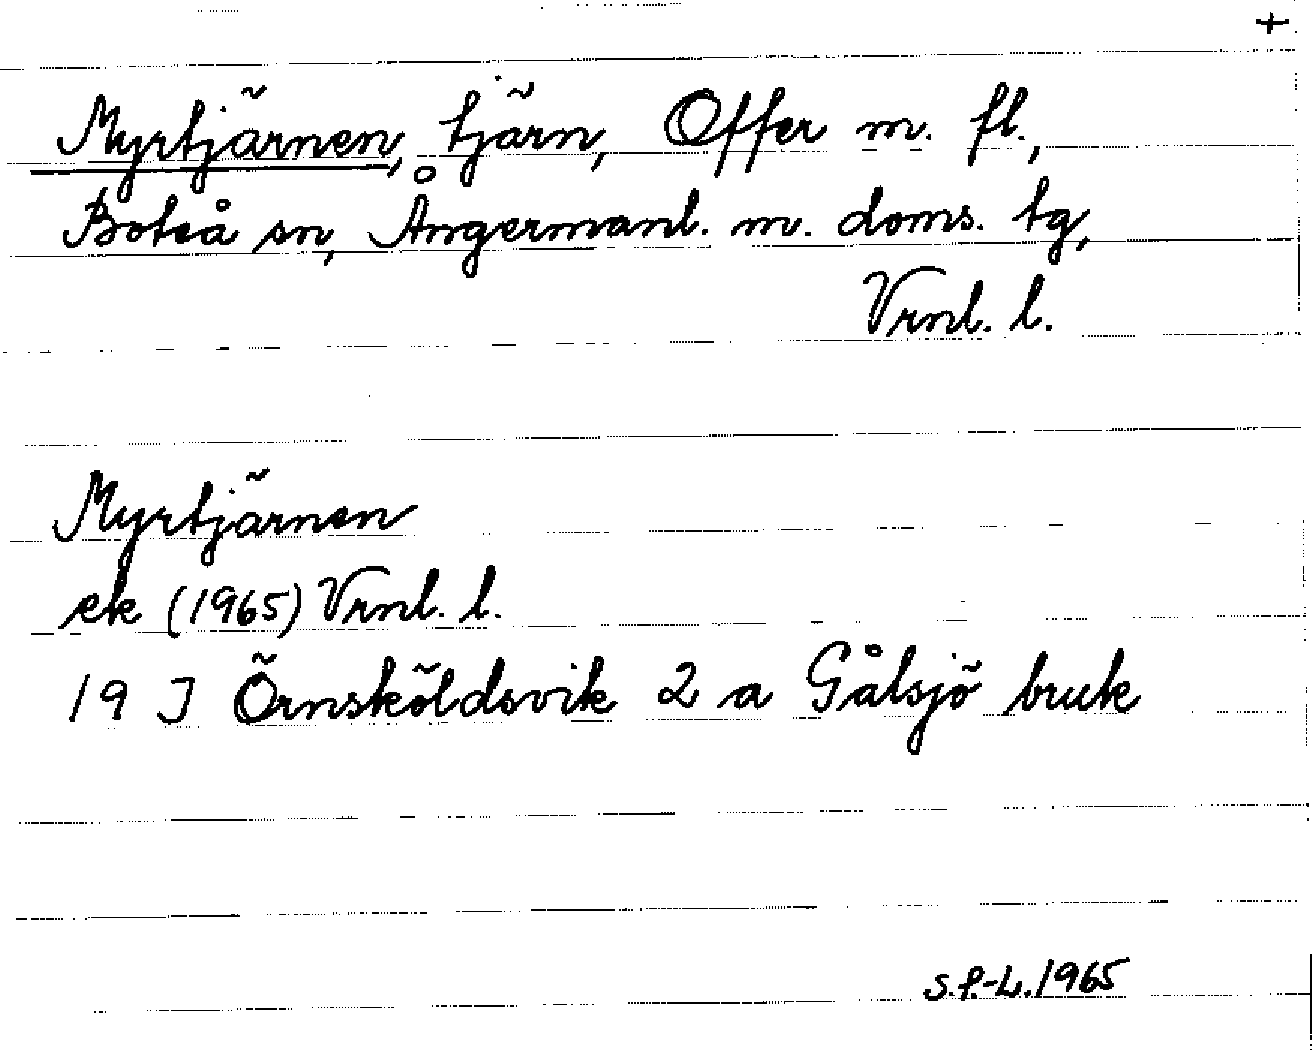 +
Myrtjärnen, tjärn, Offer m. fl.,
Boteå sn, Ångermanl. m. doms. tg,
Vrnl. l.
Myrtjärnen
ek (1965) Vrnl. l.
19 J Örnsköldsvik 2 a Gålsjö bruk
S.P.-L. 1965